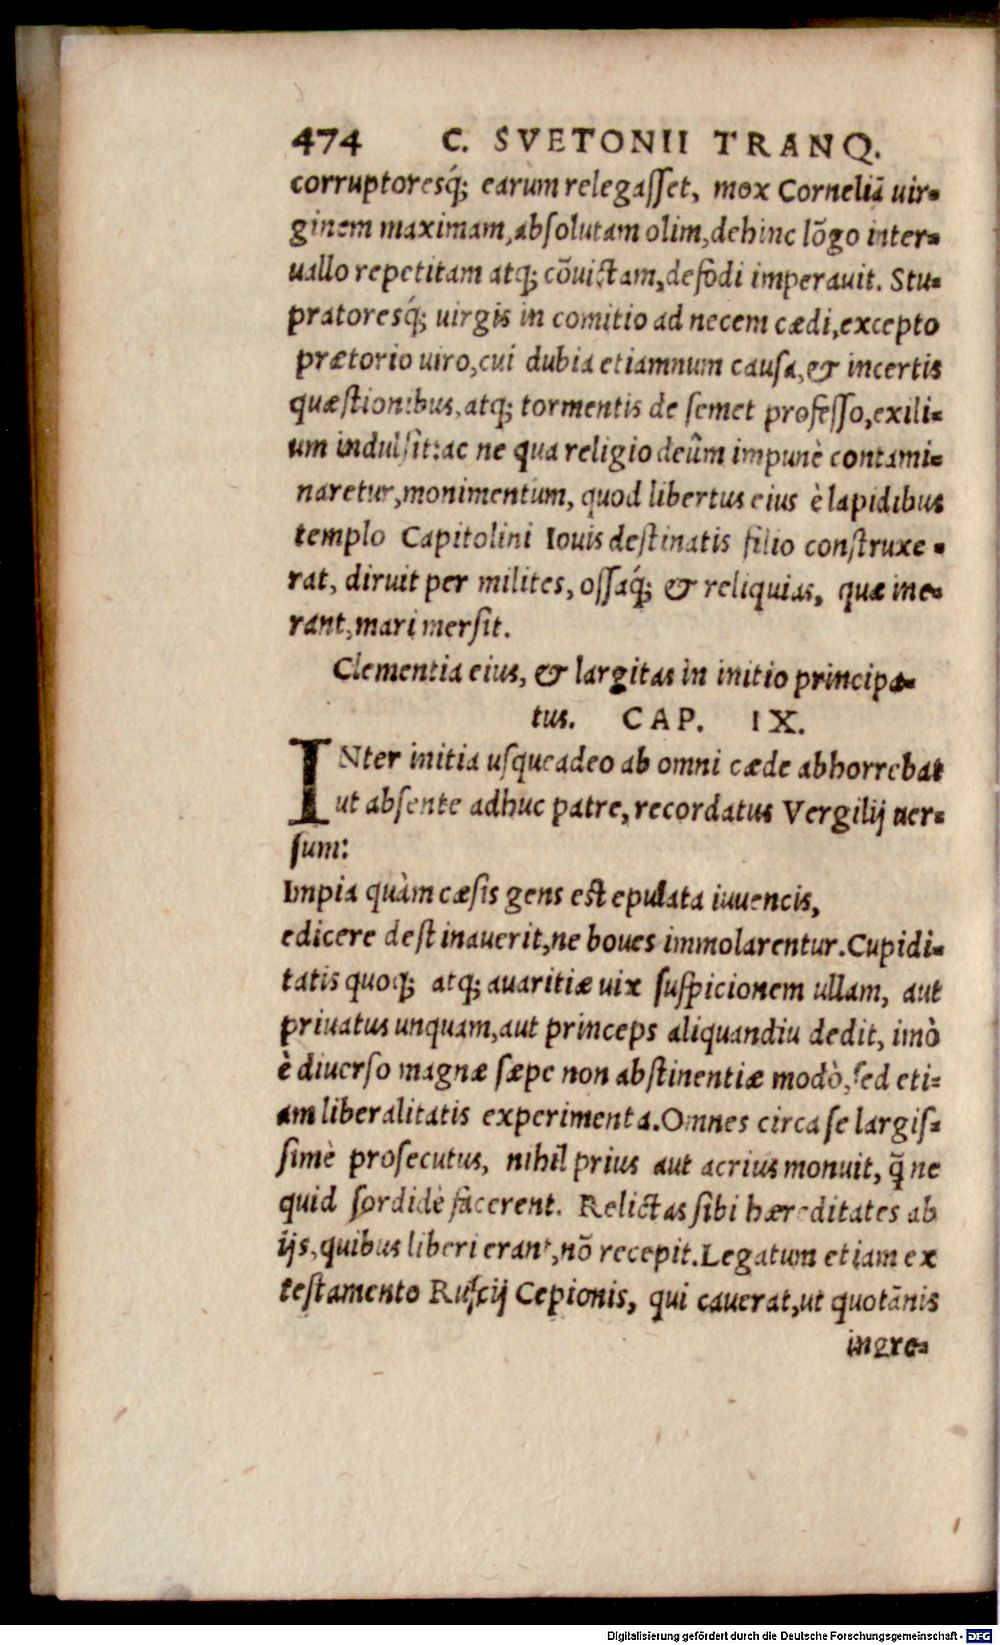 474 C. SVETONII TRANQ.
corruptoresq́; earum relegaſſet, mox Corneliā uir-
ginem maximam, abſolutam olim, dehinc lōgo inter-
uallo repetitam atq; cōuictam, defodi imperauit. Stu-
pratoresq́; uirgis in comitio ad necem cædi, excepto
prætorio uiro, cui dubia etiamnum cauſa, & incertis
quæſtionibus, atq; tormentis de ſemet profeſſo, exili-
um indulſit: ac ne qua religio deûm impunè contami-
naretur, monimentum, quod libertus eius è lapidibus
templo Capitolini Iouis deſtinatis filio conſtruxe-
rat, diruit per milites, oſſaq́; & reliquias, quæ ine-
rant, mari merſit.
Clementia eius, & largitas in initio principa-
tus. CAP. IX.
INter initia uſqueadeo ab omni cæde abhorrebat
ut abſente adhuc patre, recordatus Vergilij uer-
ſum:
Impia quàm cæſis gens eſt epulata iuuencis,
edicere deſtinauerit, ne boues immolarentur. Cupidi-
tatis quoq; atq; auaritiæ uix ſuſpicionem ullam, aut
priuatus unquam, aut princeps aliquandiu dedit, imò
è diuerſo magnæ ſæpe non abſtinentiæ modò, ſed eti-
am liberalitatis experimenta. Omnes circa ſe largiſ-
ſimè proſecutus, nihil prius aut acrius monuit, q̃ ne
quid ſordidè facerent. Relictas ſibi hæreditates ab
ijs, quibus liberi erant, nō recepit. Legatum etiam ex
teſtamento Ruſcij Cepionis, qui cauerat, ut quotānis
ingre-
Digitalisierung gefördert durch die Deutsche Forschungsgemeinschaft - DFG